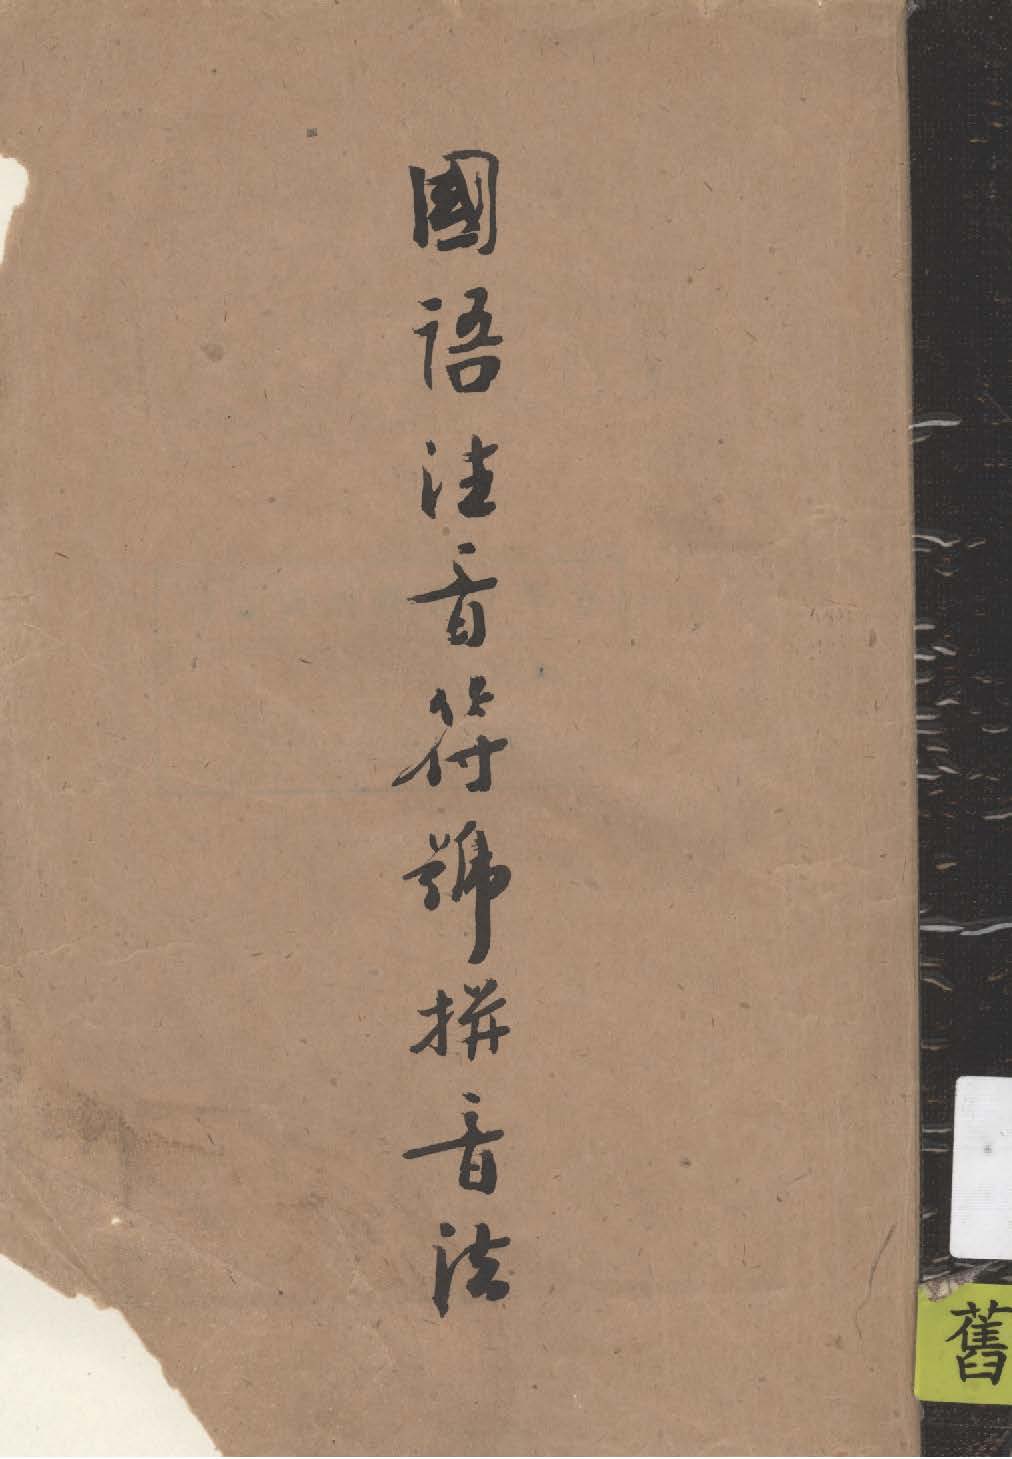 國語注音符號拼音法
舊